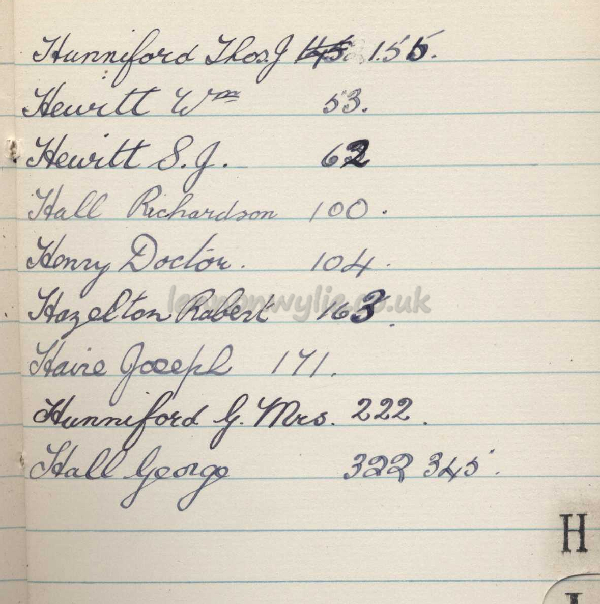 Hunniford Thos J 145. 155.
Hewitt Wm 53.
Hewitt S. J. 62
Hall Richardson 100.
Henry Doctor. 104.
Hazelton Robert 163.
lennonwylie.co.uk
Haire Joseph 171.
Hunniford G. Mrs. 222.
Hall George 322 345.
H